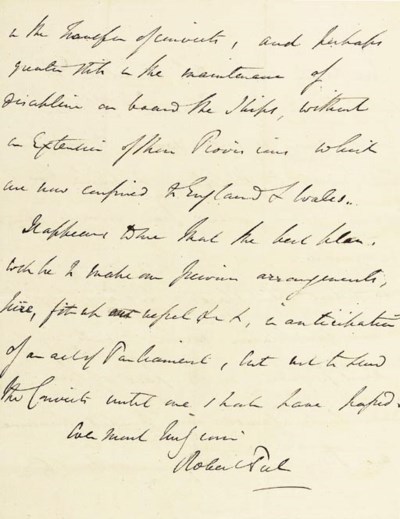 in the transfer of convicts, and perhaps
greater still in the maintenance of
discipline on board the Ships, without
an Extension of these Provisions which
are now confined to England & Wales.
It appears to me that the best plan
wd be to make our previous arrangements,
hire, fit up vessel &c &, in anticipation
of an act of Parliament, but not to send
the Convicts until one shall have passed.
Ever most truly yours
Robert Peel